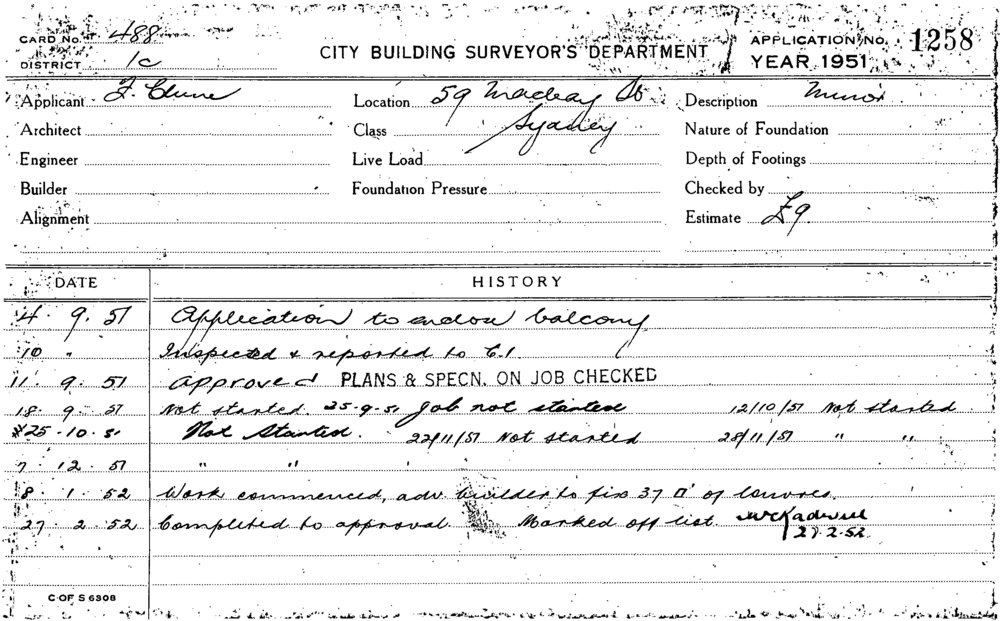 CARD No. 488
DISTRICT 1c
CITY BUILDING SURVEYOR'S DEPARTMENT
APPLICATION No. 1258
YEAR 1951
Applicant F. Clune Location 59 Macleay St Description Minor
Architect Class Sydney Nature of Foundation
Engineer Live Load Depth of Footings
Builder Foundation Pressure Checked by
Alignment Estimate £9
DATE HISTORY
4. 9. 51 Application to enclose balcony
10 " Inspected & reported to C.I.
11. 9. 51 Approved PLANS & SPECN. ON JOB CHECKED
18. 9. 51 Not started. 25-9-51 Job not started 12/10/51 Not started.
25. 10. 51 Not Started. 22/11/51 Not started 28/11/51 " "
7. 12. 51 " "
8. 1. 52 Work commenced, adv builder to fix 37 □' of louvres.
27. 2. 52 Completed to approval. Marked off list.
27.2.52
C OF S 6308